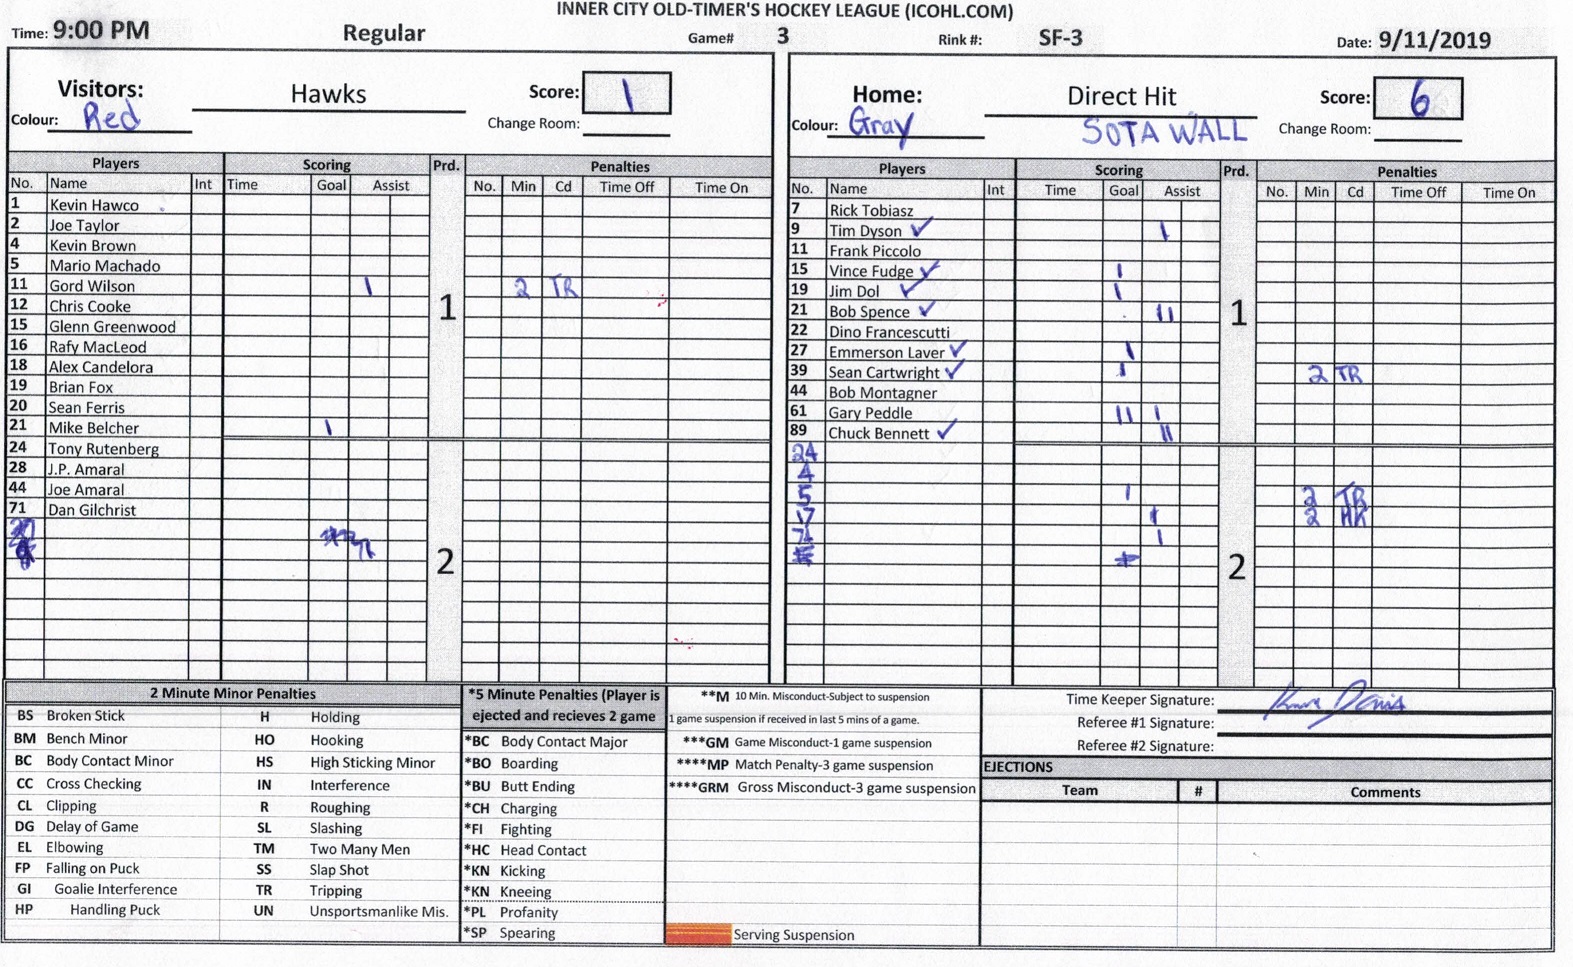 INNER CITY OLD-TIMER'S HOCKEY LEAGUE (ICOHL.COM)
Time: 9:00 PM Regular Game# 3 Rink #: SF-3 Date: 9/11/2019
Visitors: Hawks Score: 1
Colour: Red Change Room:
Players Scoring Prd. Penalties
No. Name Int Time Goal Assist No. Min Cd Time Off Time On
1 Kevin Hawco
2 Joe Taylor
4 Kevin Brown
5 Mario Machado
11 Gord Wilson 1 2 TR
12 Chris Cooke
1
15 Glenn Greenwood
16 Rafy MacLeod
18 Alex Candelora
19 Brian Fox
20 Sean Ferris
21 Mike Belcher 1
24 Tony Rutenberg
28 J.P. Amaral
44 Joe Amaral
71 Dan Gilchrist
2
Home: Direct Hit Score: 6
Colour: Gray SOTA WALL Change Room:
Players Scoring Prd. Penalties
No. Name Int Time Goal Assist No. Min Cd Time Off Time On
7 Rick Tobiasz
9 Tim Dyson ✓ 1
11 Frank Piccolo
15 Vince Fudge ✓ 1
19 Jim Dol ✓ 1
21 Bob Spence ✓ 11
1
22 Dino Francescutti
27 Emmerson Laver ✓ 1
39 Sean Cartwright ✓ 1 2 TR
44 Bob Montagner
61 Gary Peddle 11 1
89 Chuck Bennett ✓ 11
24
4
5 1 2 TR
17 1 2
71 1
2
2 Minute Minor Penalties
BS Broken Stick H Holding
BM Bench Minor HO Hooking
BC Body Contact Minor HS High Sticking Minor
CC Cross Checking IN Interference
CL Clipping R Roughing
DG Delay of Game SL Slashing
EL Elbowing TM Two Many Men
FP Falling on Puck SS Slap Shot
GI Goalie Interference TR Tripping
HP Handling Puck UN Unsportsmanlike Mis.
*5 Minute Penalties (Player is
ejected and recieves 2 game
*BC Body Contact Major
*BO Boarding
*BU Butt Ending
*CH Charging
*FI Fighting
*HC Head Contact
*KN Kicking
*KN Kneeing
*PL Profanity
*SP Spearing
**M 10 Min. Misconduct-Subject to suspension
1 game suspension if received in last 5 mins of a game.
***GM Game Misconduct-1 game suspension
****MP Match Penalty-3 game suspension
****GRM Gross Misconduct-3 game suspension
Serving Suspension
Time Keeper Signature:
Referee #1 Signature:
Referee #2 Signature:
EJECTIONS
Team # Comments